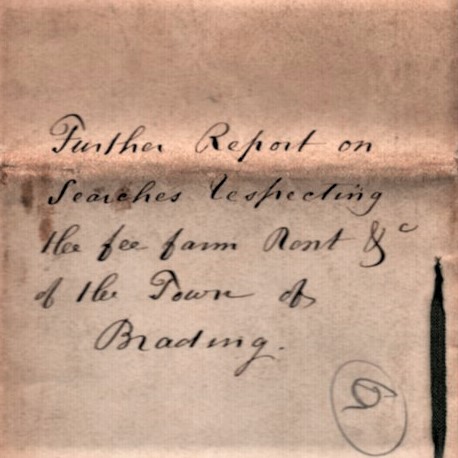 Further Report on
Searches respecting
the fee farm Rent &c
of the Town of
Brading.